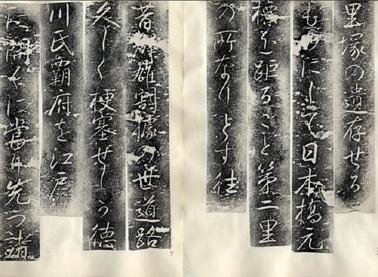 里塚の遺存せる
ものにして日本橋元
標を距ること第二里
の所なりとす往
昔群雄割據の世道路
久しく梗塞せしか徳
川氏覇府を江戸
に開くに當り先つ諸